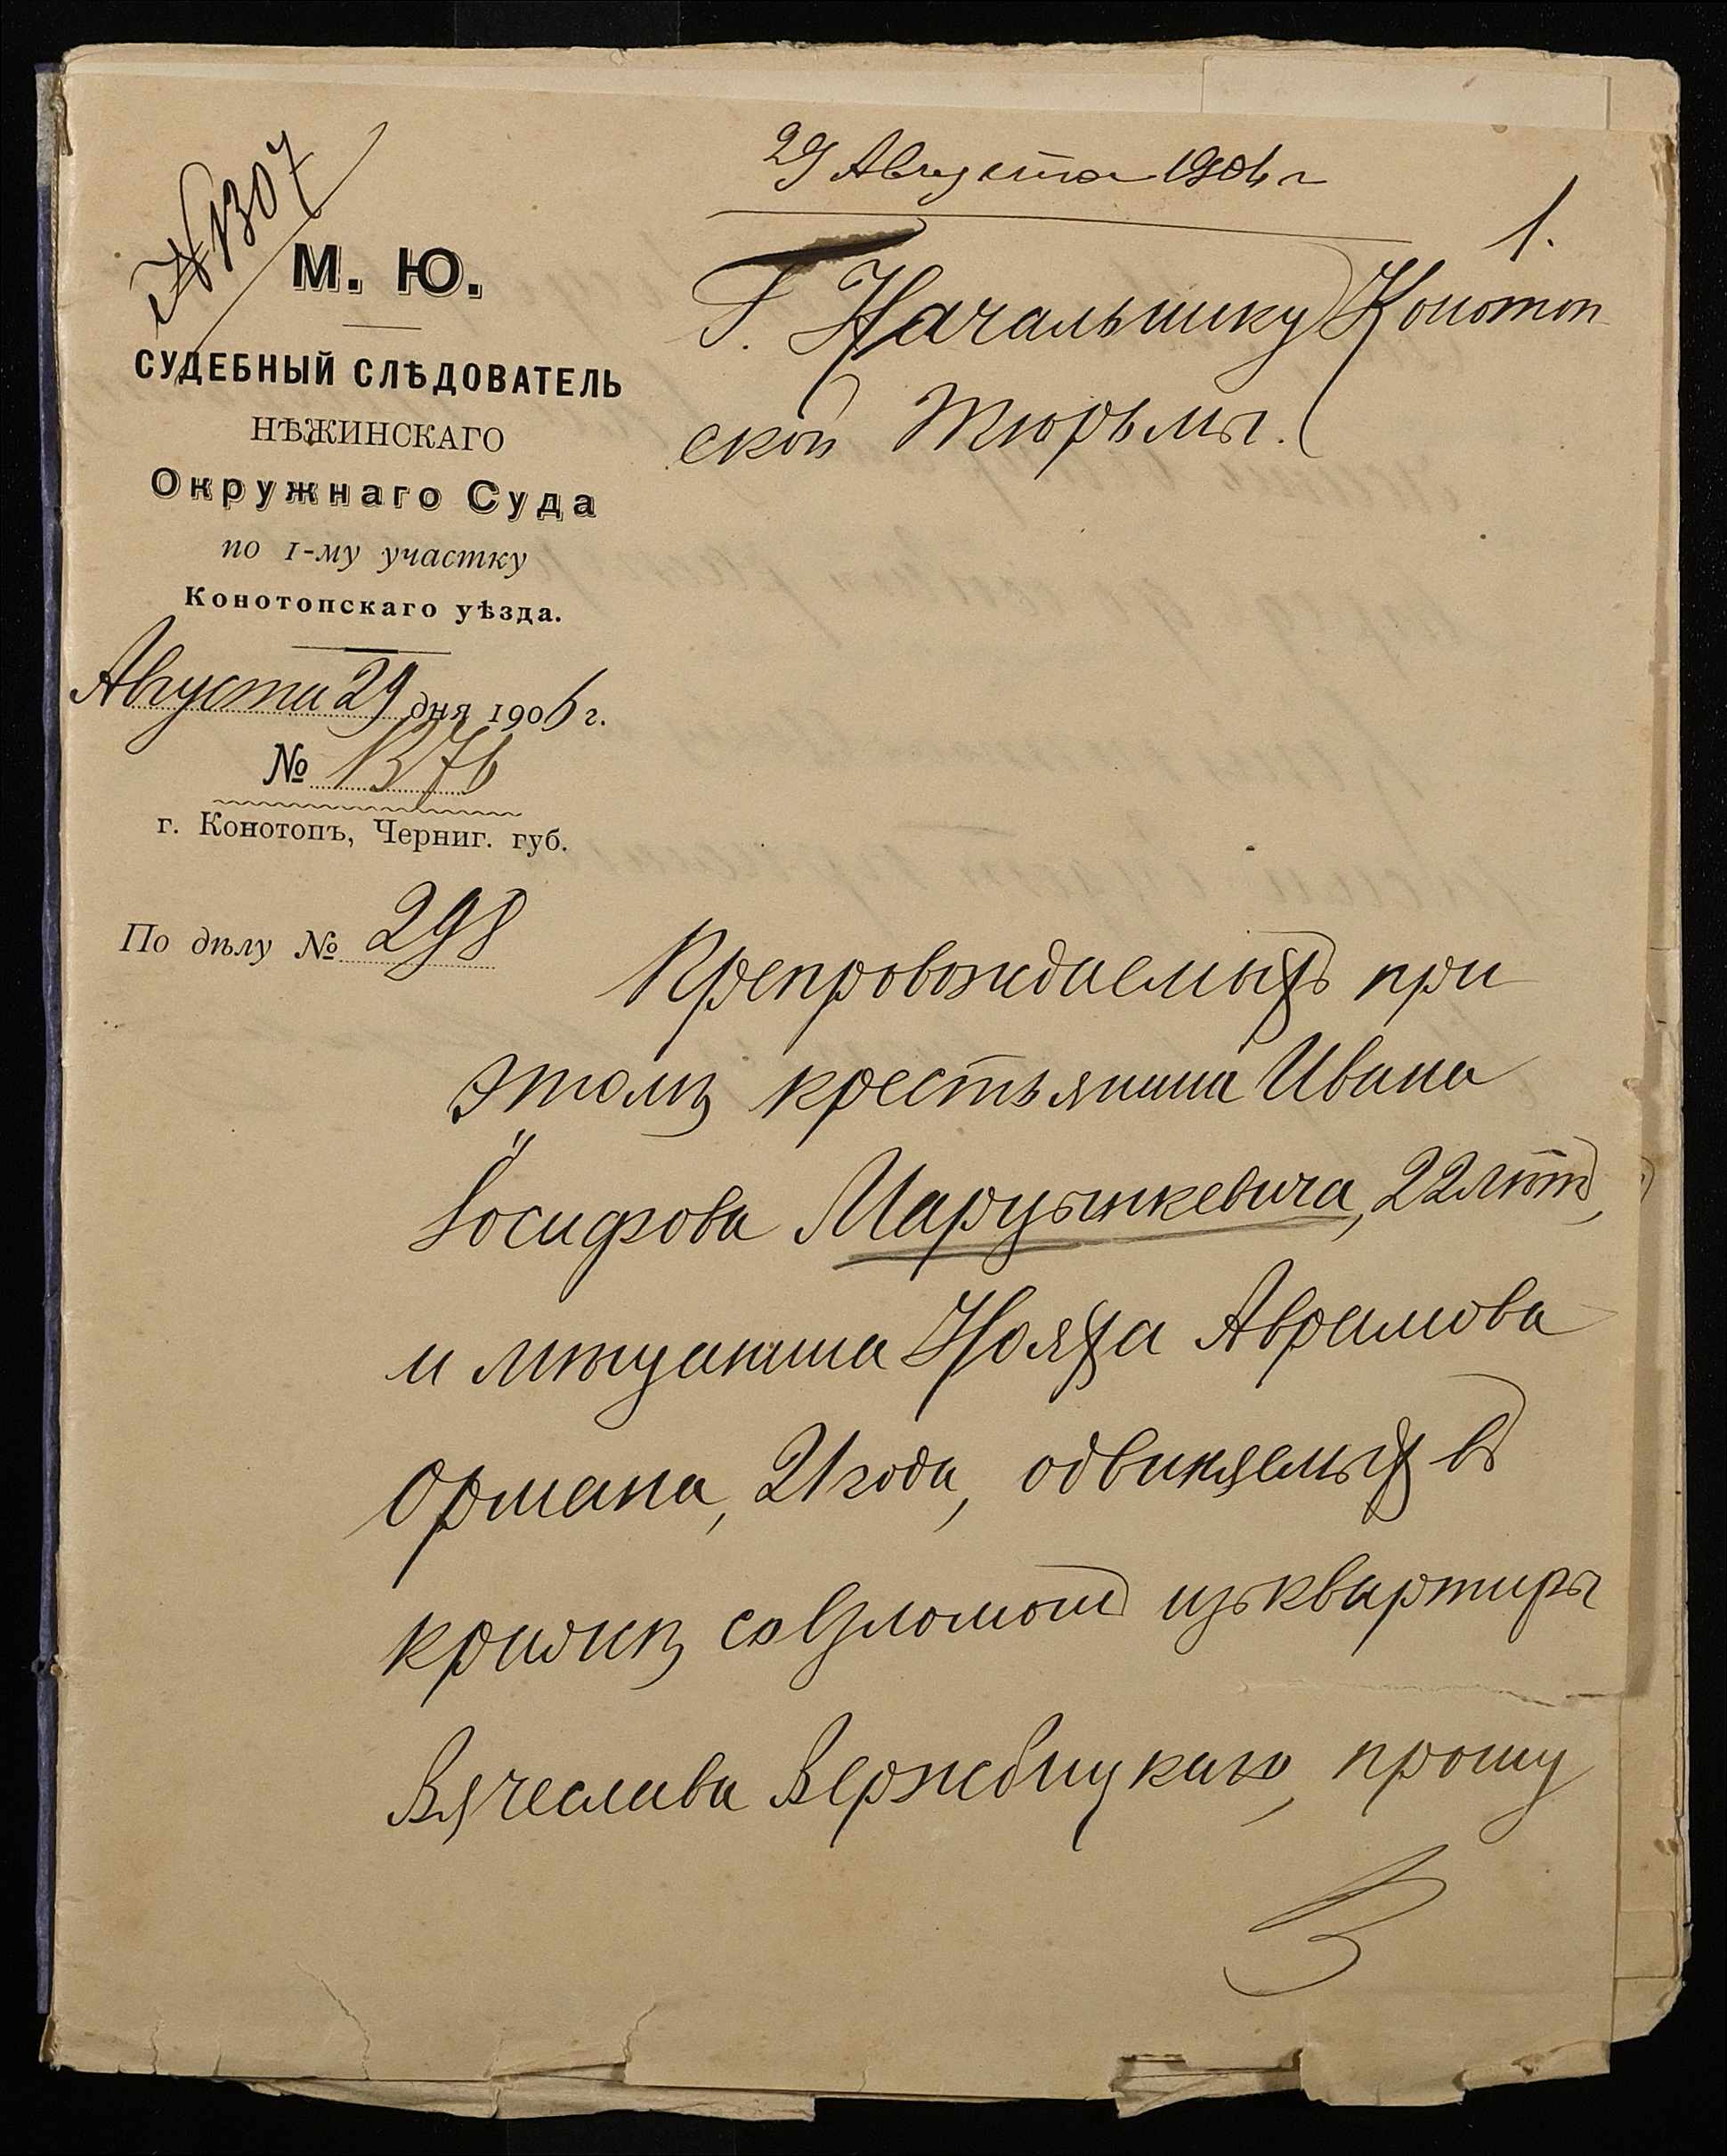 № 1307
29 Августа 1906 г
1.
М. Ю.
Г. Начальнику Конотоп
ской Тюрьмы.
СУДЕБНЫЙ СЛѢДОВАТЕЛЬ
НѢЖИНСКАГО
Окружнаго Суда
по 1-му участку
Конотопскаго уѣзда.
Августа 29 дня 1906 г.
№ 1376
г. Конотопъ, Черниг. губ.
По дѣлу № 298
Препровождаемыхъ при
этомъ крестьянина Ивана
Іосифова Марушкевича, 22 лѣтъ,
и мѣщанина Аврамова
Ормана, 21 года, обвиняемыхъ въ
кражѣ со взломомъ изъ квартиры
Вячеслава Вержбицкаго, прошу